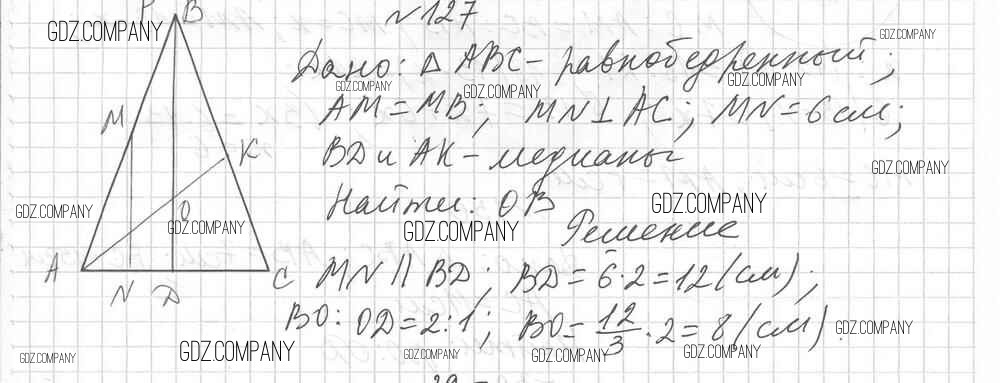 №127
GDZ.COMPANY
GDZ.COMPANY
Дано: Δ ABC - равнобедренный;
GDZ.COMPANY
GDZ.COMPANY
GDZ.COMPANY
AM = MB; MN ⊥ AC; MN = 6 см;
BD и AK - медианы
GDZ.COMPANY
Найти: OB
GDZ.COMPANY
GDZ.COMPANY
Решение
MN || BD; BD = 6·2 = 12 (см);
BO : OD = 2:1; BO = 12/3 · 2 = 8 (см)
GDZ.COMPANY
B
M
K
GDZ.COMPANY
O
GDZ.COMPANY
A
C
N
D
GDZ.COMPANY
GDZ.COMPANY
GDZ.COMPANY
GDZ.COMPANY
GDZ.COMPANY